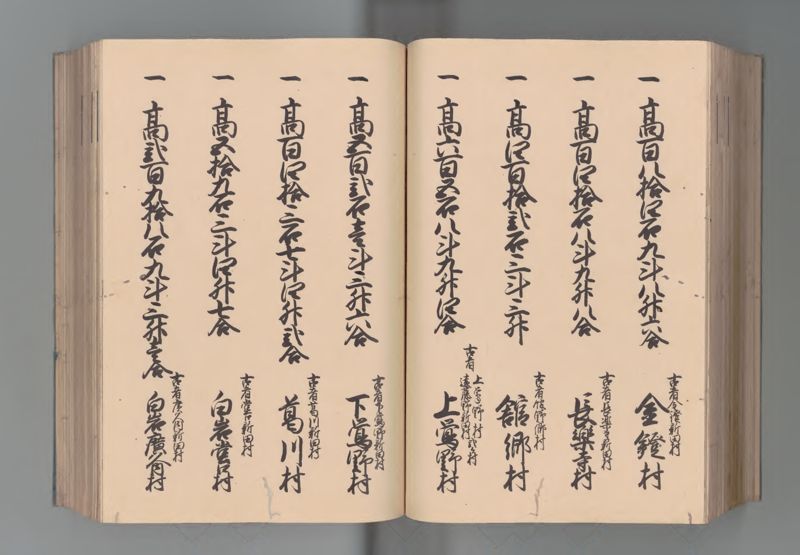 一 高百八拾四石九斗八升六合
古者金澄新田村
金鐙村
一 高百四拾石八斗九升八合
古者長楽寺新田村
長樂寺村
一 高四百拾弐石三斗三升
古者舘野郷村
舘郷村
一 高六百五石八斗九升四合
古者 上鴬野村
遠藤野新田村
上鴬野村
一 高五百弐石壱斗三升六合
古者下鴬野新田村
下鴬野村
一 高百四拾三石七斗四升弐合
古者葛川新田村
葛川村
一 高五拾九石三斗四升七合
古者堂口新田村
白岩堂口村
一 高弐百九拾八石九斗三升壱合
古者廣久内新田村
白岩廣久内村